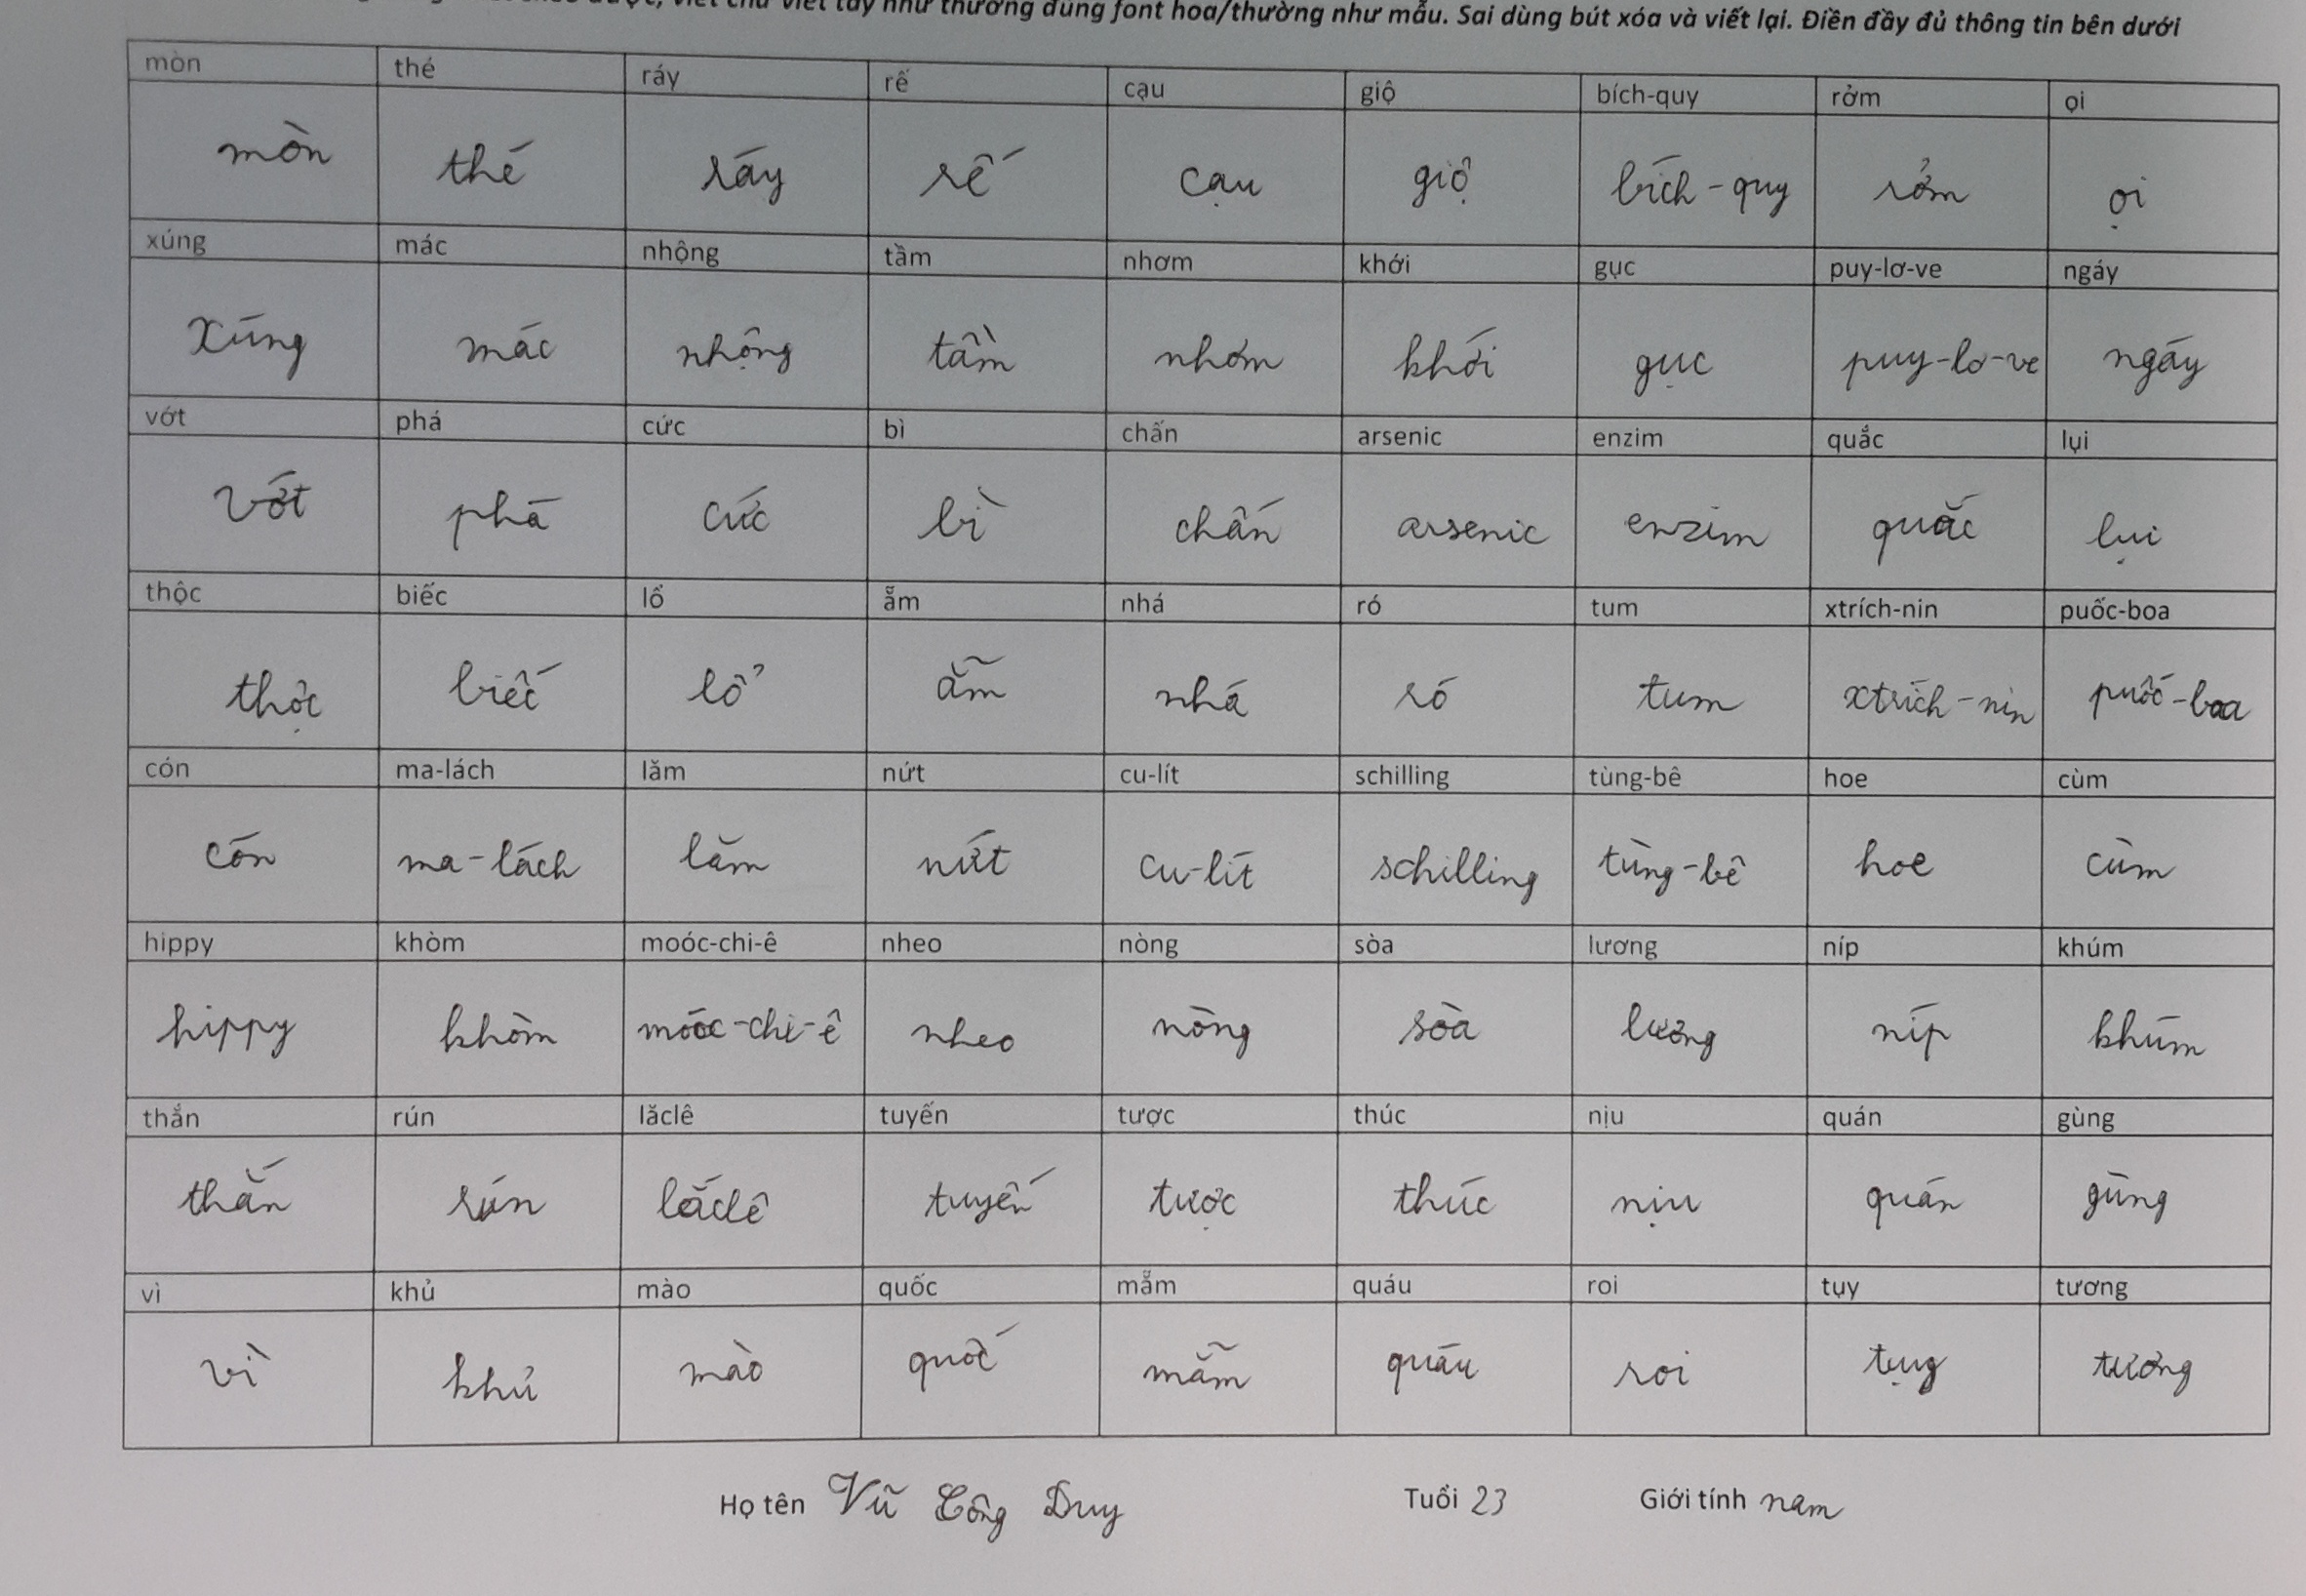 viết chữ viết tay như thường dùng font hoa/thường như mẫu. Sai dùng bút xóa và viết lại. Điền đầy đủ thông tin bên dưới
mòn thé ráy rế cạu giộ bích-quy rởm ọi
mòn thé ráy rế cạu giộ bích-quy rởm ọi
xúng mác nhộng tầm nhơm khới gục puy-lơ-ve ngáy
xúng mác nhộng tầm nhơm khới gục puy-lơ-ve ngáy
vớt phá cức bì chấn arsenic enzim quắc lụi
vớt phá cức bì chấn arsenic enzim quắc lụi
thộc biếc lổ ẵm nhá ró tum xtrích-nin puốc-boa
thộc biếc lổ ẵm nhá ró tum xtrích-nin puốc-boa
cón ma-lách lăm nứt cu-lít schilling tùng-bê hoe cùm
cón ma-lách lăm nứt cu-lít schilling tùng-bê hoe cùm
hippy khòm moóc-chi-ê nheo nòng sòa lương níp khúm
hippy khòm moóc-chi-ê nheo nòng sòa lương níp khúm
thắn rún lăclê tuyến tược thúc nịu quán gùng
thắn rún lắclê tuyến tược thúc nịu quán gùng
vì khủ mào quốc mẵm quáu roi tụy tương
vì khủ mào quốc mẵm quáu roi tụy tương
Họ tên Vũ Công Duy Tuổi 23 Giới tính nam